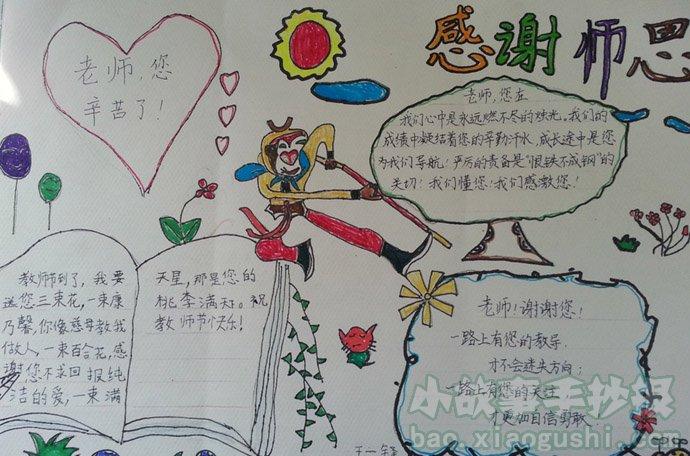 感谢师恩
老师,您
辛苦了!
老师,您在
我们心中是永远燃不尽的烛光,我们的
成绩中凝结着您的辛勤汗水,成长途中是您
为我们导航!严厉的责备是“恨铁不成钢”的
关切!我们懂您!我们感激您!
教师节到了,我要
送您三束花,一束康
乃馨,你像慈母教我
做人,一束百合花,感
谢您不求回报纯
洁的爱,一束满
天星,那是您的
桃李满天下。祝
教师节快乐!
老师!谢谢您!
一路上有您的教导,
才不会迷失方向;
一路上有您的关注
才更加自信勇敢.
小故事手抄报
bao.xiaogushi.com